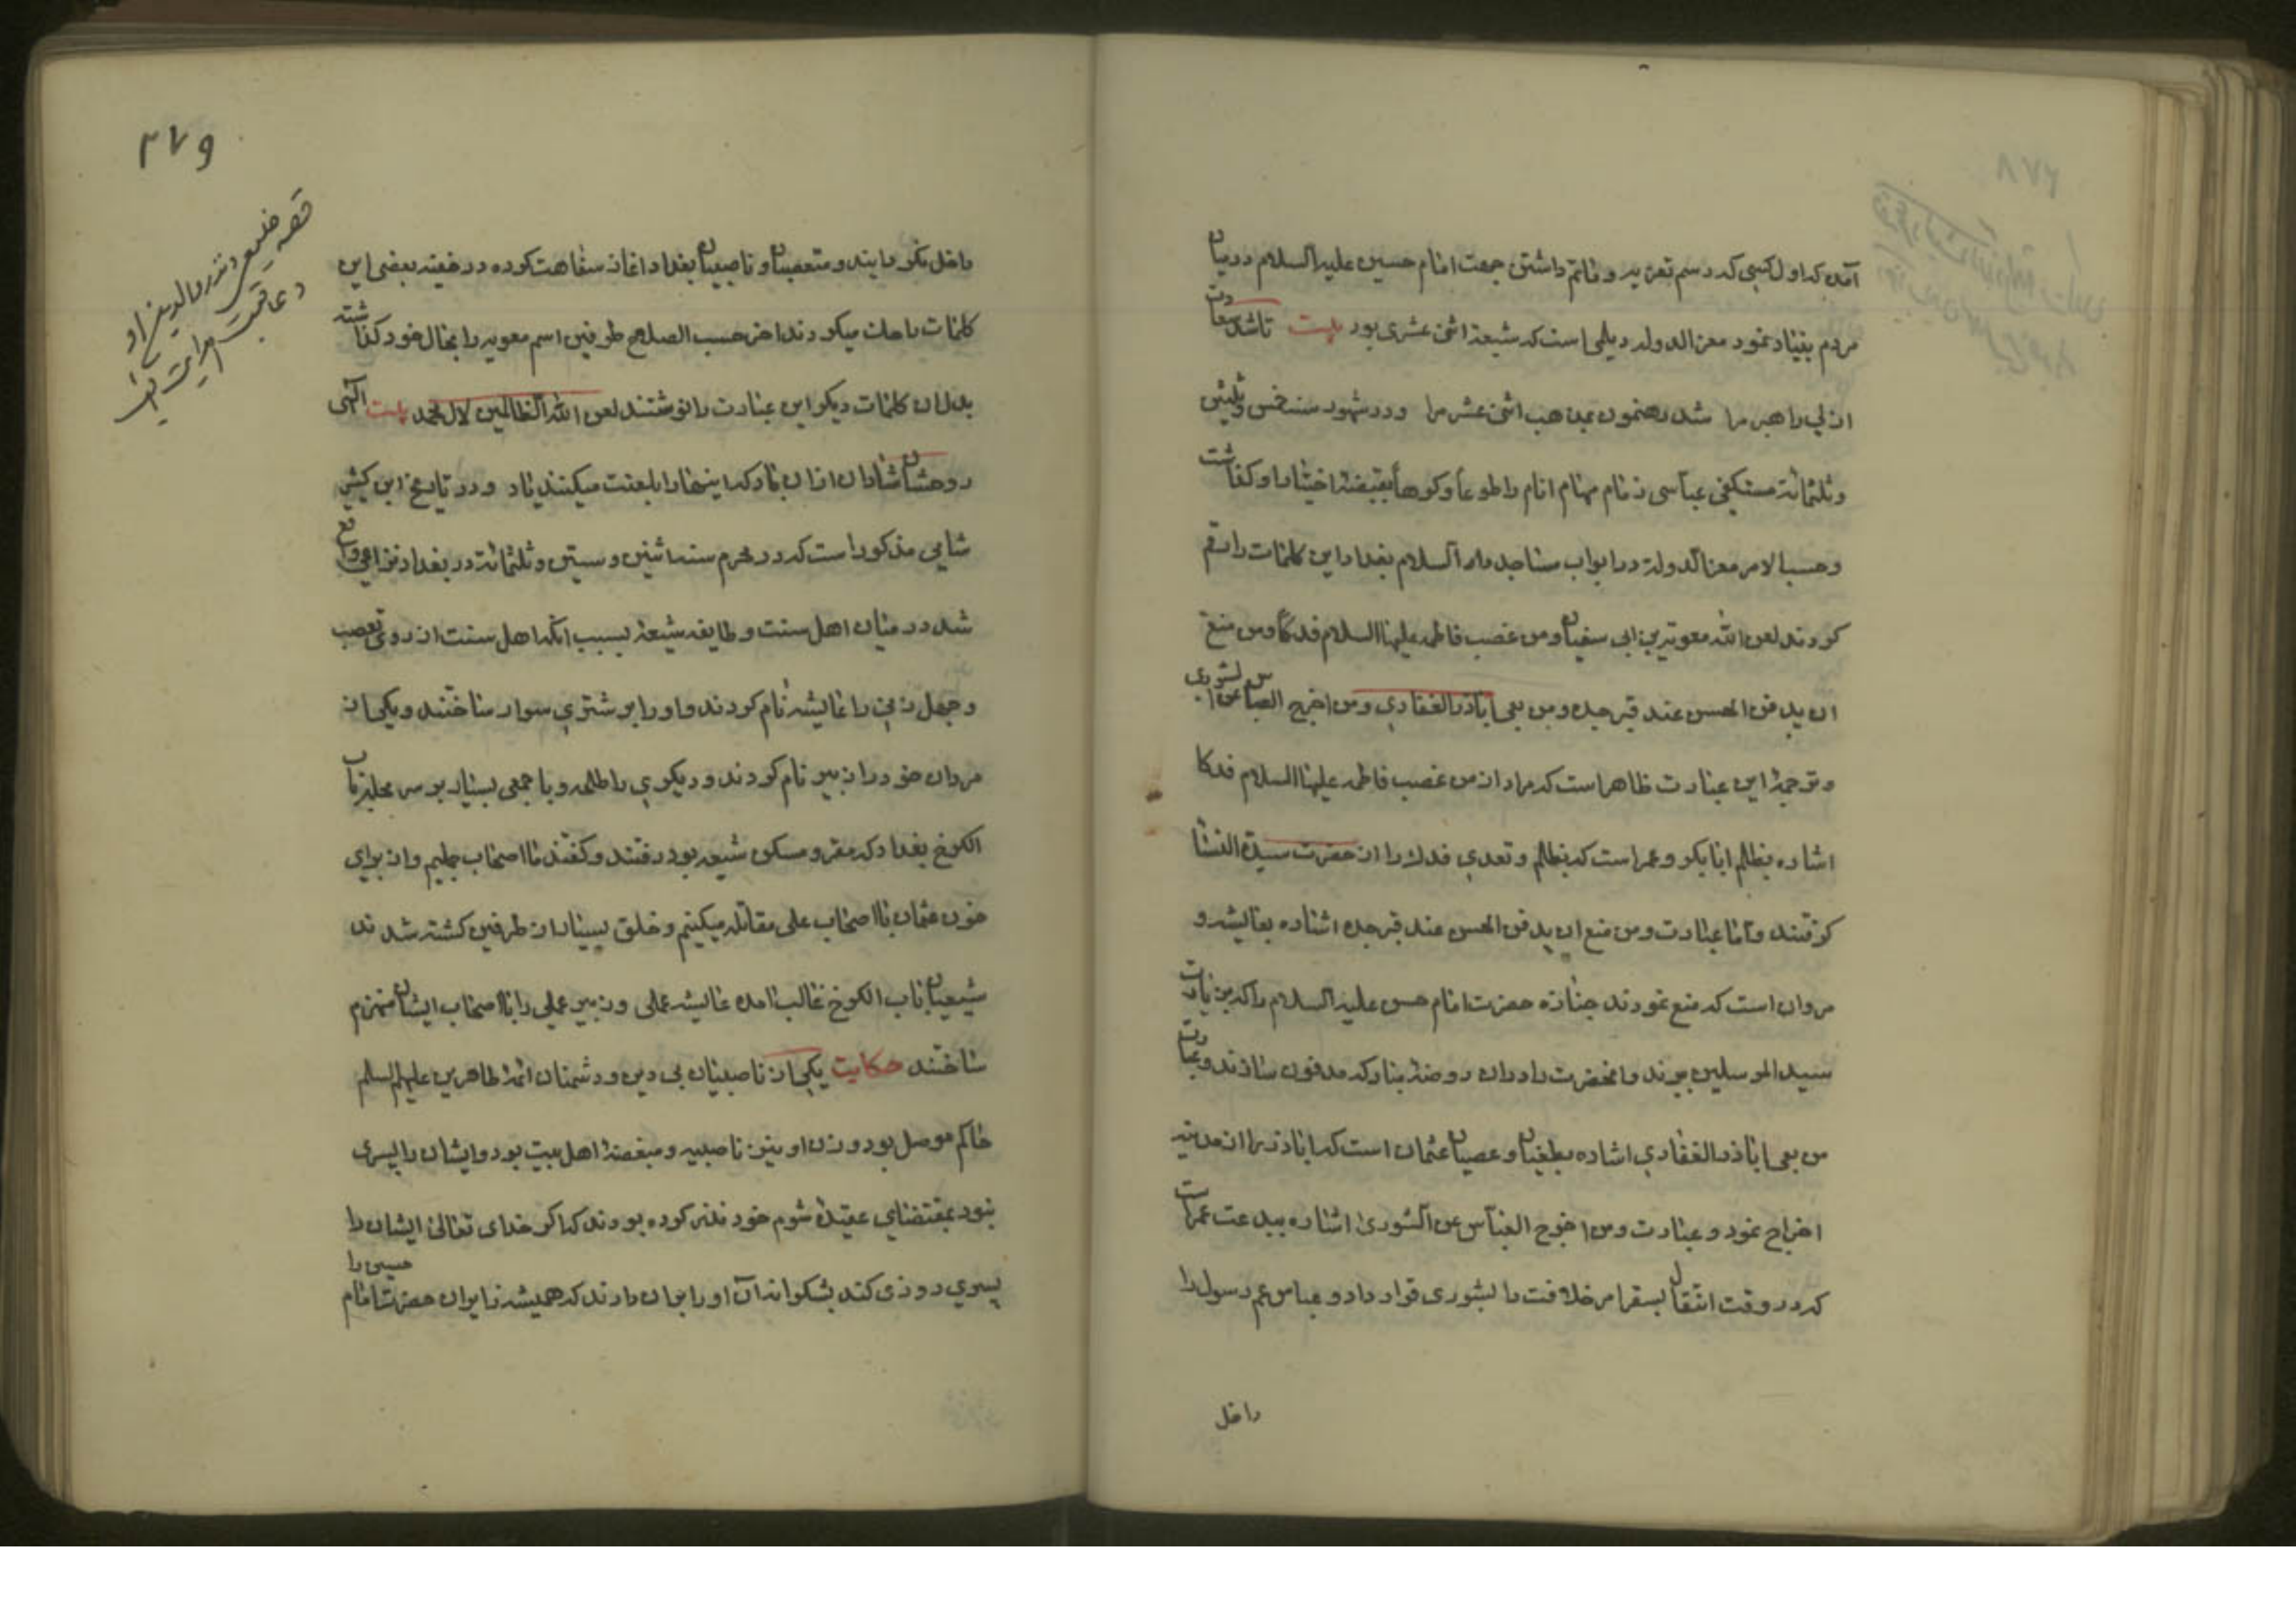 آمده که اول کسی که رسم تعزیه و ماتم داشتن جهت امام حسین علیه السلام در میان
مردم بغداد نمود معز الدوله دیلمی است که شیعهٔ اثنی عشری بود بیت تا شد سعادت
ازلی راهبر مرا شد رهنمون بمذهب اثنی عشر مرا و در شهور سنه خمس و ثلثین
و ثلثمائة مستکفی عباسی زمام مهام انام را طوعاً و کرهاً بقبضهٔ اختیار او گذاشت
و حسب الامر معز الدولة در ابواب مساجد دار السلام بغداد این کلمات را رقم
کردند لعن الله معویة بن ابی سفیان و من غصب فاطمه علیها السلام فدکاً و من منع
ان یدفن الحسن عند قبر جده و من نفی اباذر الغفاری و من اخرج العباس عن الشوری
و ترجمهٔ این عبارت ظاهر است که مراد از من غصب فاطمه علیها السلام فدکا
اشاره بظلم ابابکر و عمر است که بظلم و تعدی فدک را از حضرت سیدة النسا
گرفتند و اما عبارت و من منع ان یدفن الحسن عند قبر جده اشاره بعایشه و
مروان است که منع نمودند جنازه حضرت امام حسن علیه السلام را که بزیارت
سید المرسلین برند و انحضرت را دران روضهٔ مبارکه مدفون سازند و عبارت
من نفی اباذر الغفاری اشاره بطغیان و عصیان عثمان است که اباذر را از مدینه
اخراج نمود و عبارت و من اخرج العباس عن الشوری اشاره ببدعت عمر است
که در وقت انتقال بسقر امر خلافت را بشوری قرار داد و عباس عم رسول را
داخل
۳۷۹
قصه خلیعی
و عاقبت هدایت
داخل نکردانیدند و متعصبان و ناصبیان بغداد اغاز سفاهت کرده در خفیه بعضی این
کلمات را حک میکردند اخر حسب الصلاح طرفین اسم معویه را بحال خود گذاشته
بدل ان کلمات دیکر این عبارت را نوشتند لعن الله الظالمین لال محمد بیت الهی
روحشان شادان ازان باد که اینها را بلعنت میکنند یاد و در تاریخ ابن کثیر
شامی مذکور است که در محرم سنه اثنین و ستین و ثلثمائة در بغداد نزاعی واقع
شد در میان اهل سنت و طایفه شیعه بسبب انکه اهل سنت از روی تعصب
و جهل زنی را عایشه نام کردند و او را بر شتری سوار ساختند و یکی از
مردان خود را زبیر نام کردند و دیکری را طلحه و با جمعی بسیار بر سر محله باب
الکرخ بغداد که مقر و مسکن شیعه بود رفتند و گفتند ما اصحاب جملیم و از برای
خون عثمان با اصحاب علی مقاتله میکنیم و خلق بسیار از طرفین کشته شدند
شیعیان باب الکرخ غالب امده عایشه عملی و زبیر عملی را با اصحاب ایشان منهزم
ساختند حکایت یکی از ناصبیان بی دین و دشمنان ائمه طاهرین علیهم السلم
حاکم موصل بود و زن او نیز ناصبیه و مبغضهٔ اهل بیت بود و ایشان را پسری
نبود بمقتضای عقیدهٔ شوم خود نذر کرده بودند که اکر خدای تعالی ایشان را
پسری روزی کند بشکرانه آن او را بران دارند که همیشه زایران حضرت امام
حسین را